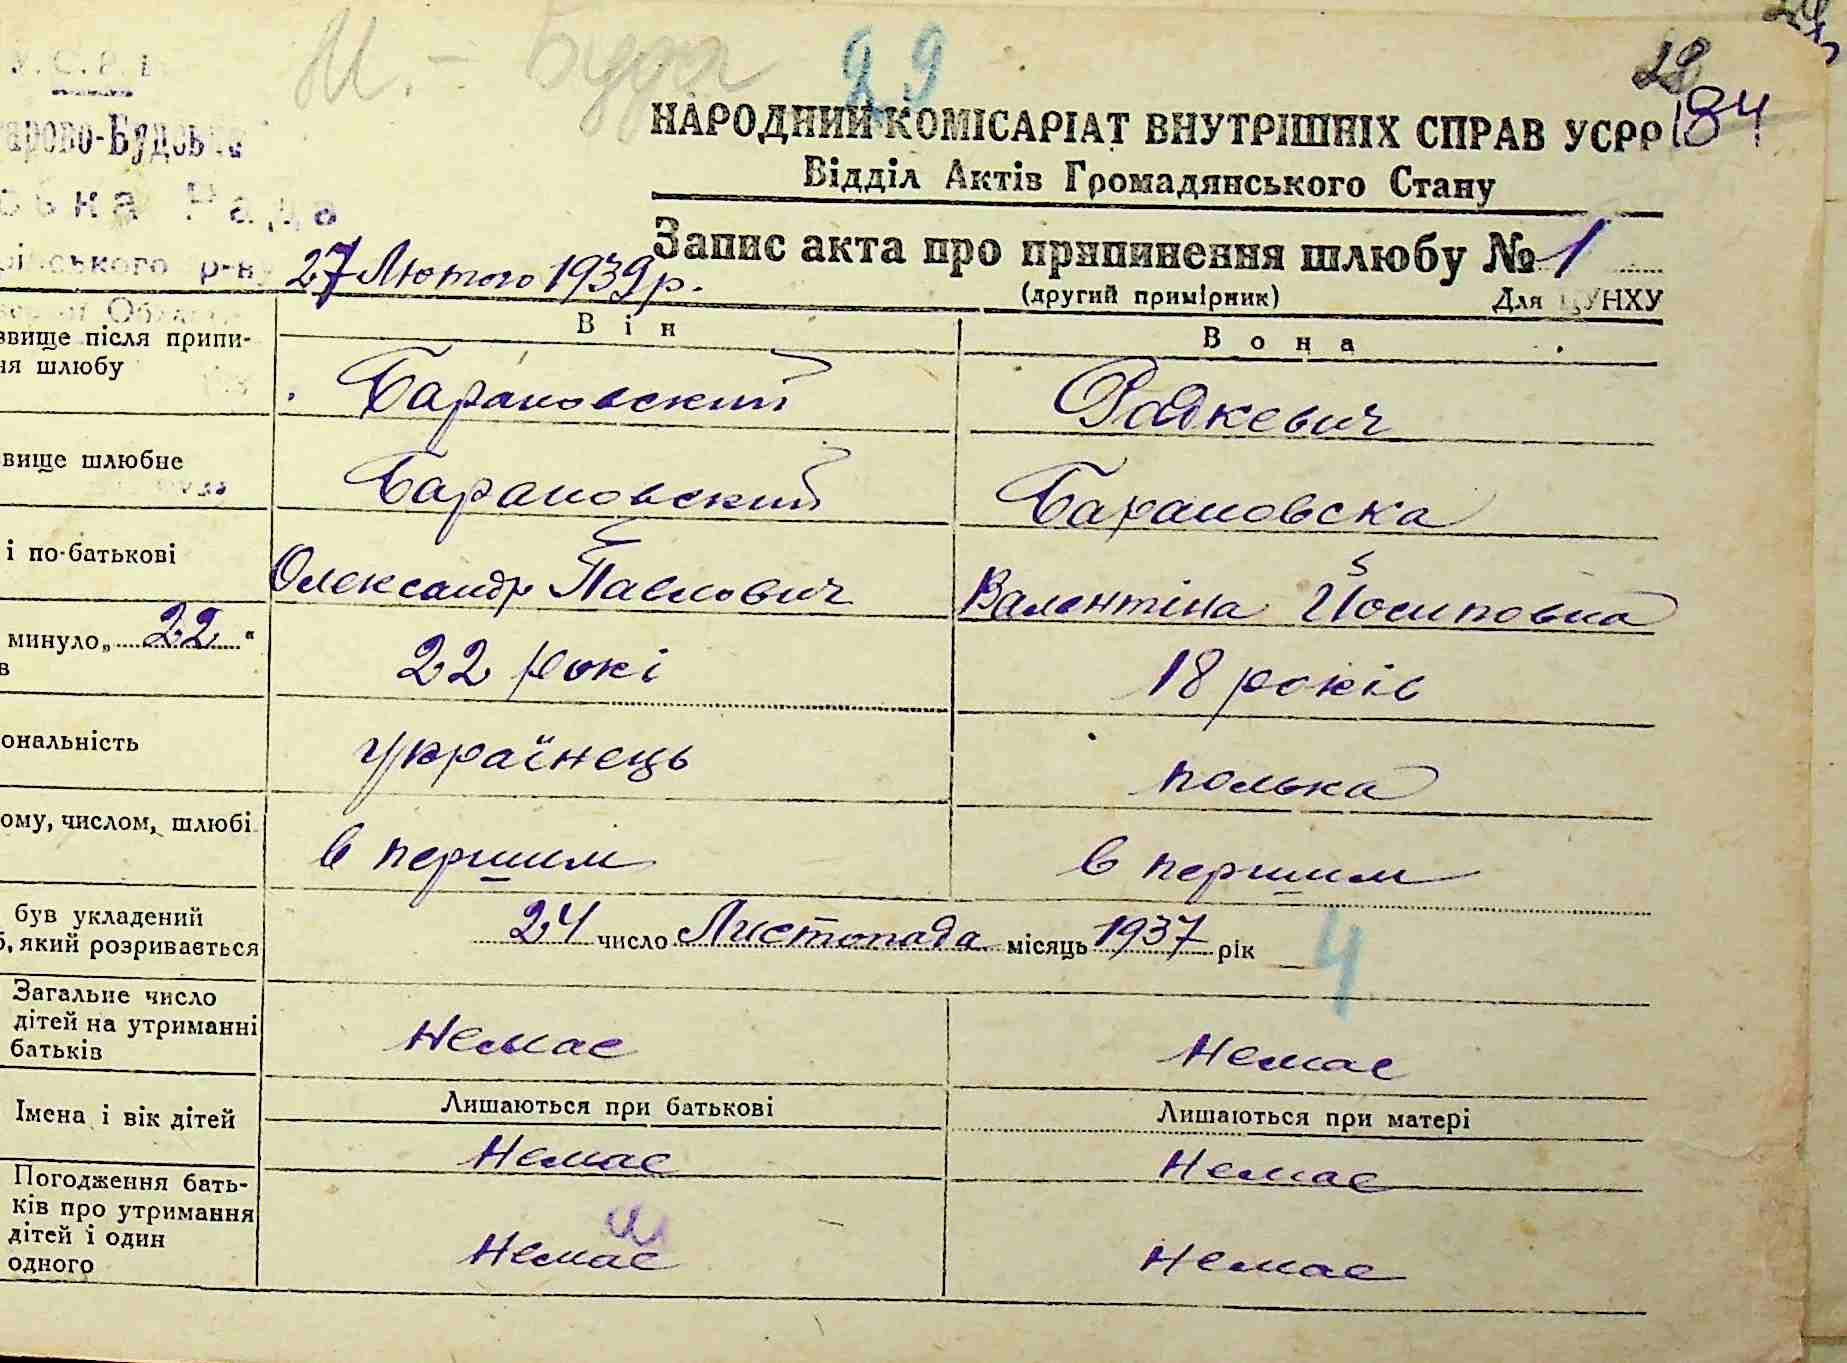 У.С.Р.Р.
М.-Буда
29
28
184
арово-Будська
ська Рада
ського р-ну
НАРОДНИЙ КОМІСАРІАТ ВНУТРІШНІХ СПРАВ УСРР
Відділ Актів Громадянського Стану
Запис акта про припинення шлюбу № 1
27 Лютого 1939 р.
(другий примірник) Для ЦУНХУ
Він Вона
звище після припи-
ня шлюбу
Барановский Радкевич
звище шлюбне
Барановский Барановска
і по-батькові
Олександр Павлович Валентіна Йосиповна
минуло „22“
в
22 рокі 18 років
ональність
українець полька
ому, числом, шлюбі
в першим в першим
був укладений
б, який розривається
24 число Листопада місяць 1937 рік
4
Загальне число
дітей на утриманні
батьків
Немає Немає
Імена і вік дітей
Лишаються при батькові Лишаються при матері
Немає Немає
Погодження бать-
ків про утримання
дітей і один
одного
Немає Немає